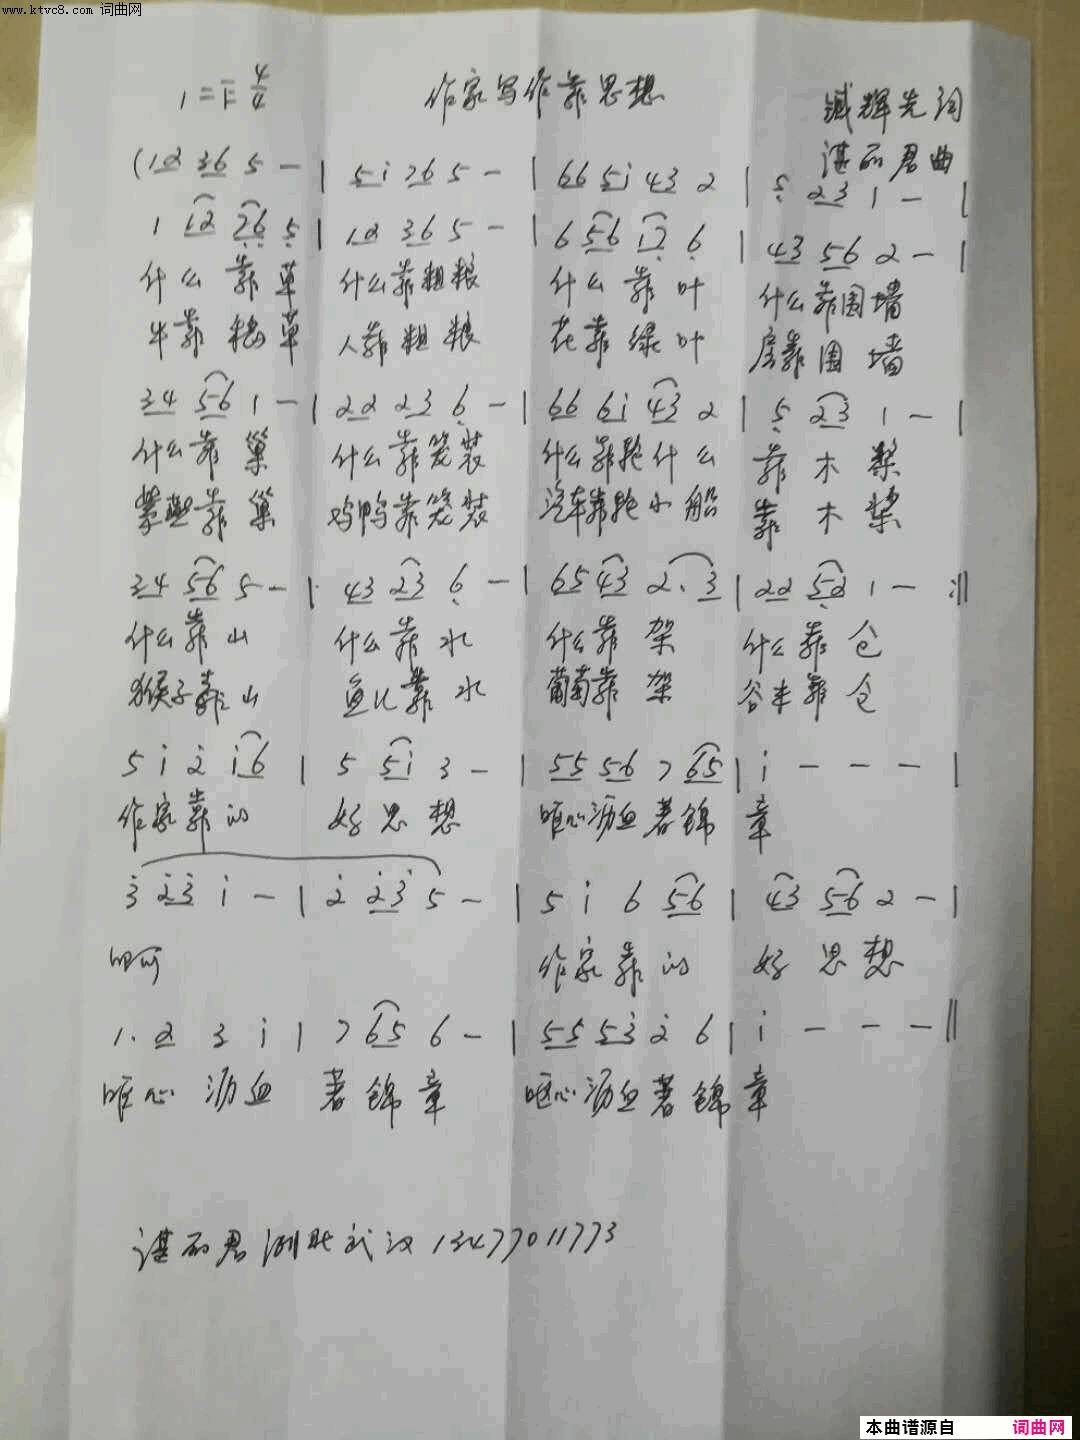 www.ktvc8.com 词曲网
1=F 4/4 作家写作靠思想 臧辉先词
谌丽君曲
(12 36 5 - | 5i 76 5 - | 66 5i 43 2 | 5 23 1 - |
1 12 26 5 | 12 36 5 - | 6 56 12 6 | 43 56 2 - |
什么靠草 什么靠粗粮 什么靠叶 什么靠围墙
牛靠粮草 人靠粗粮 花靠绿叶 房靠围墙
34 56 1 - | 22 23 6 - | 66 6i 43 2 | 5 23 1 - |
什么靠巢 什么靠笼装 什么靠跑什么 靠木桨
靠巢 鸡鸭靠笼装 汽车靠跑小船 靠木桨
34 56 5 - | 43 23 6 - | 65 43 2. 3 | 22 52 1 - :||
什么靠山 什么靠水 什么靠架 什么靠仓
猴子靠山 鱼儿靠水 葡萄靠架 谷丰靠仓
5 i 2 i6 | 5 5i 3 - | 55 56 7 65 | i - - - |
作家靠的 好思想 呕心沥血著锦章
3 23 i - | 2 23 5 - | 5 i 6 56 | 43 56 2 - |
啊 作家靠的 好思想
1. 2 3 i | 7 65 6 - | 55 53 2 6 | i - - - ||
呕心沥血 著锦章 呕心沥血著锦章
谌丽君 湖北武汉 13477011773
本曲谱源自 词曲网